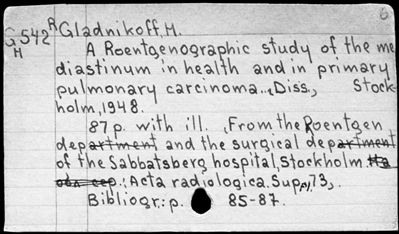 G542 R Gladnikoff, H.
H
A Roentgenographic study of the me
diastinum in health and in primary
pulmonary carcinoma.., Diss., Stock-
holm, 1948.
87 p. with ill. (From the Roentgen
department and the surgical department
of the Sabbatsberg hospital, Stockholm
: Acta radiologica. Suppl, 73).
Bibliogr.: p. 85-87.